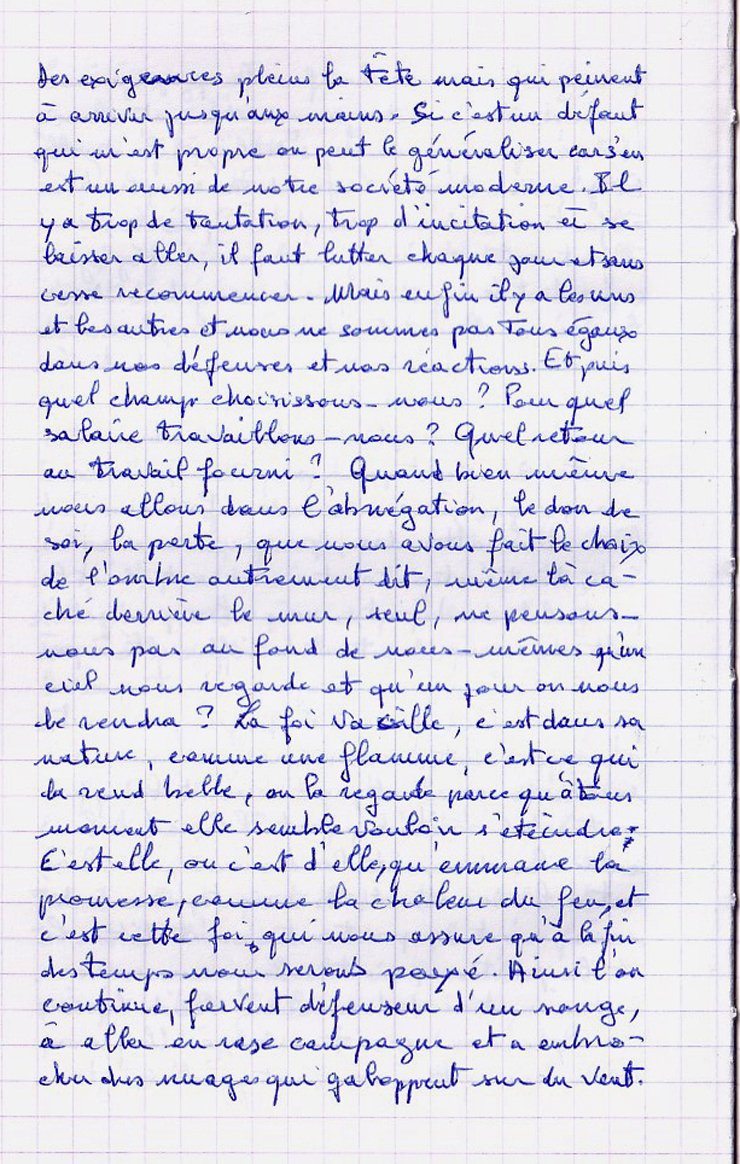 Des exigences pleins la tête mais qui peinent
à arriver jusqu'aux mains. Si c'est un défaut
qui m'est propre on peut le généraliser car s'en
est un aussi de notre société moderne. Il
y a trop de tentation, trop d'incitation à se
laisser aller, il faut lutter chaque jour et sans
cesse recommencer. Mais enfin il y a les uns
et les autres et nous ne sommes pas tous égaux
dans nos défenses et nos réactions. Et puis
quel champ choisissons-nous ? Pour quel
salaire travaillons-nous ? Quel retour
au travail fourni ? Quand bien même
nous allons dans l'abnégation, le don de
soi, la perte, que nous avons fait le choix
de l'ombre autrement dit, même là ca-
ché derrière le mur, seul, ne pensons-
nous pas au fond de nous-mêmes qu'un
ciel nous regarde et qu'un jour on nous
le rendra ? La foi vacille, c'est dans sa
nature, comme une flamme, c'est ce qui
la rend belle, on la regarde parce qu'à tous
moment elle semble vouloir s'éteindre.
C'est elle, ou c'est d'elle, qu'emmane la
promesse, comme la chaleur du feu, et
c'est cette foi, qui nous assure qu'à la fin
des temps nous serons payé. Ainsi l'on
continue, fervent défenseur d'un songe,
à aller en rase campagne et a embro-
cher des nuages qui galoppent sur du vent.